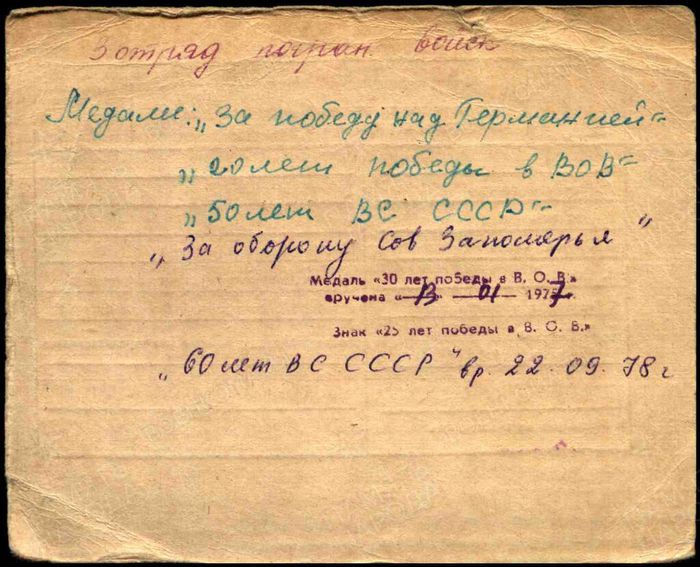 3 отряд погран войск
Медали: „За победу над Германией"
„20 лет победы в ВОВ"
„50 лет ВС СССР"
„За оборону Сов Заполярья"
Медаль «30 лет победы в В. О. В.»
вручена «13» 01 1977 г.
Знак «25 лет победы в В. О. В.»
„60 лет ВС СССР" вр. 22.09.78 г